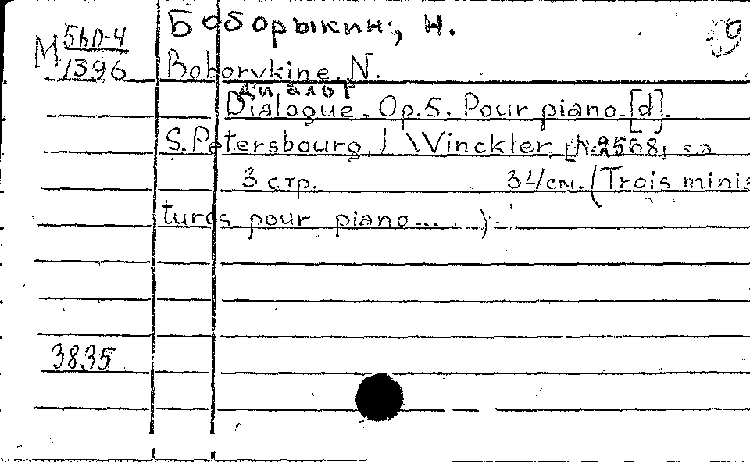 Боборыкин, Н.
М 560-4
1396
Boborykine, N.
Диалог
Dialogue. Op.5. Pour piano [d].
S.Petersbourg, J Winckler, s.a
3 стр. 34 см. (Trois minia
tures pour piano... )
3835